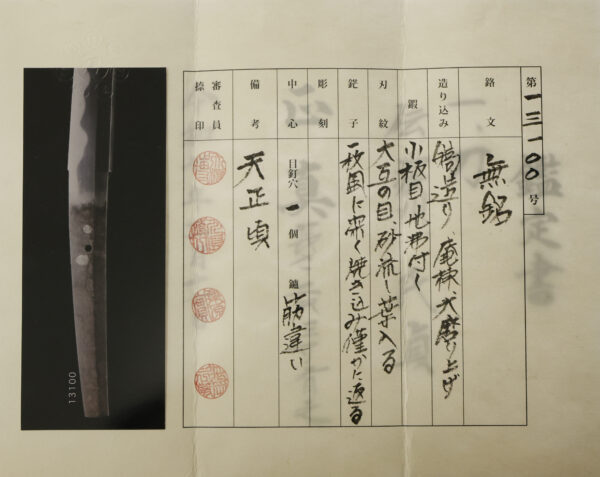 第一三一〇〇号
銘文 無銘
造り込み 鎬造り、庵棟、大磨り上げ
鍛 小板目、地沸付く
刃紋 大互の目、砂流し、葉入る
鋩子 一枚風に深く焼き込み僅かに返る
彫刻
中心 目釘穴 一個 鑢 筋違い
備考 天正頃
審査員捺印
13100
鑑定書